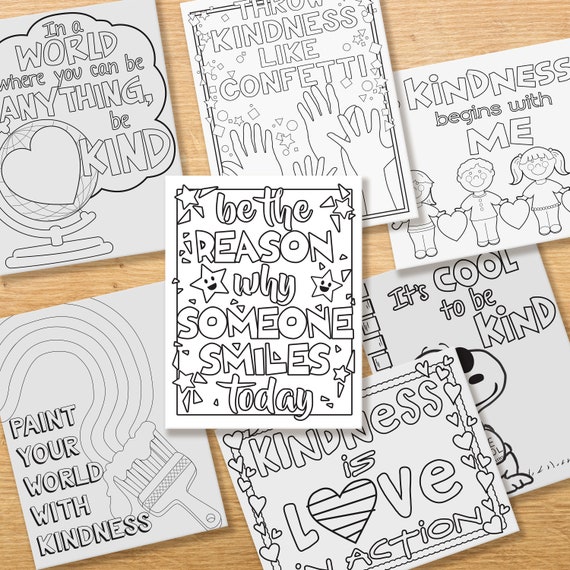 In a
WORLD
where you can be
ANYTHING,
be
KIND
THROW
KINDNESS
LIKE
CONFETTI
KINDNESS
begins with
ME
be the
REASON
why
SOMEONE
SMILES
today
It's COOL
to be
KIND
PAINT
YOUR
WORLD
WITH
KINDNESS
KINDNESS
is
LOVE
in ACTION